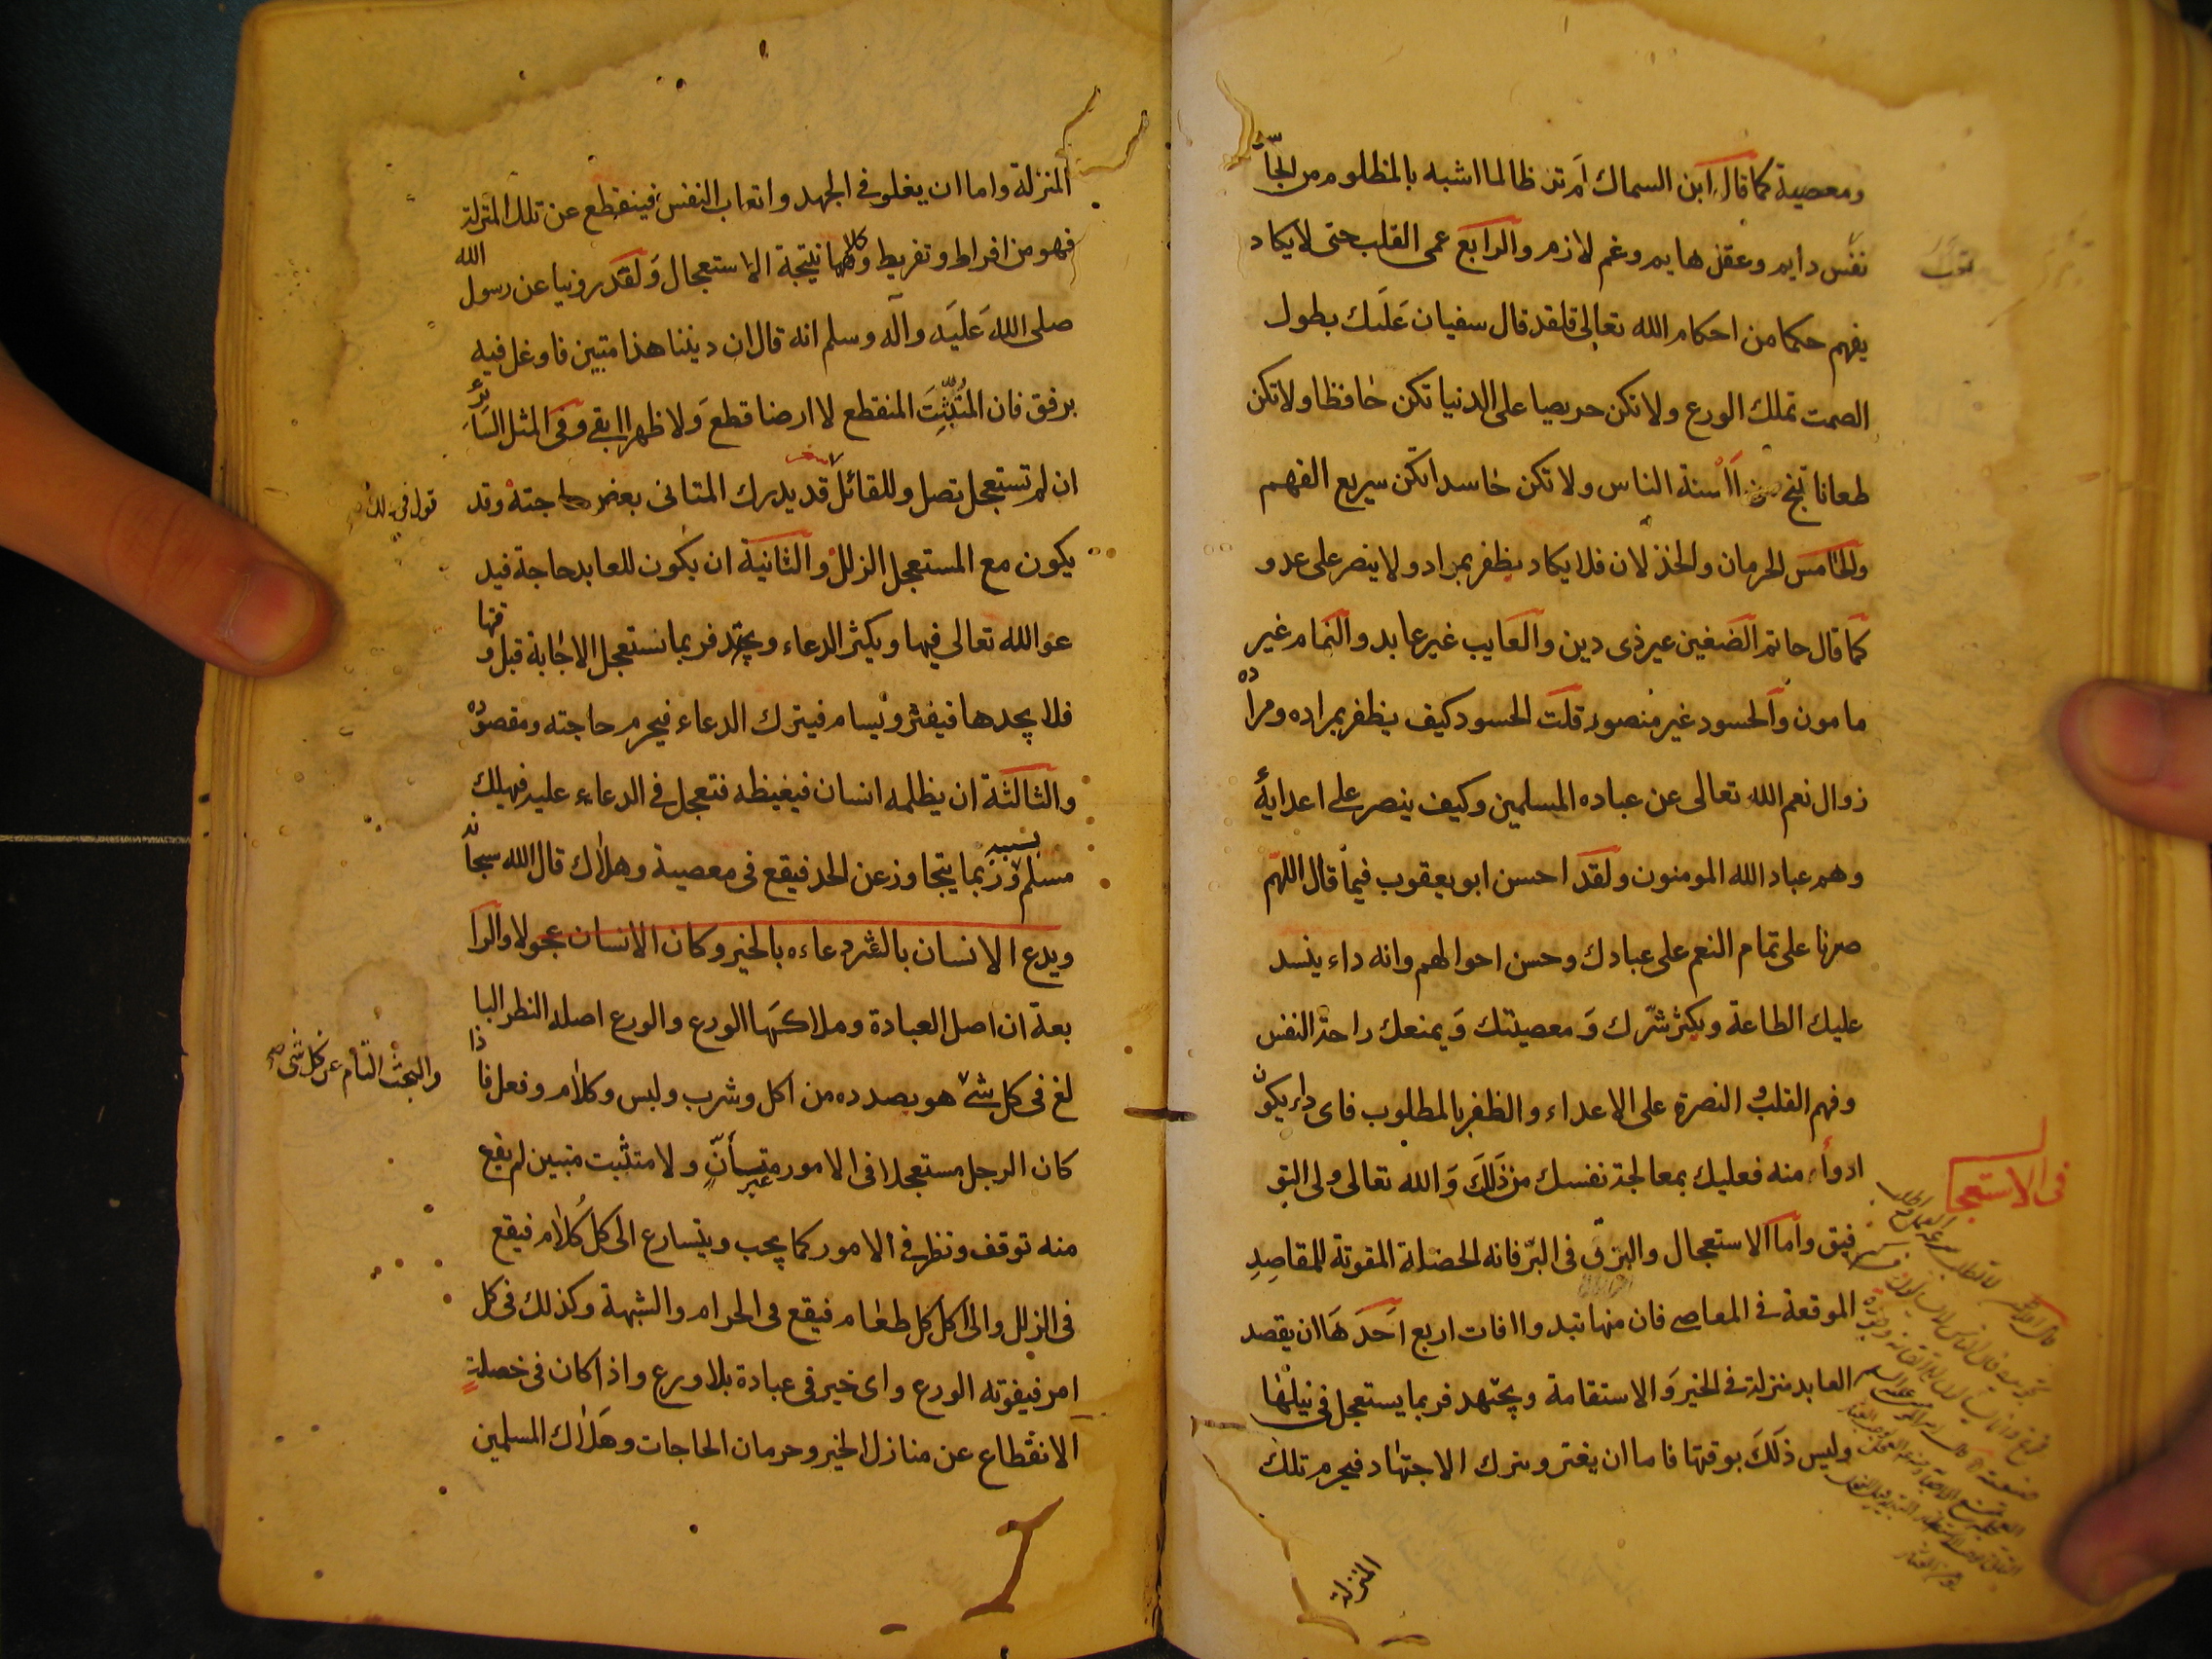 ومعصية كما قال ابن السماك لم تر ظالما اشبه بالمظلوم من الحاسد
نفس دايم وعقل هايم وغم لازم والرابع عمى القلب حتى لا يكاد
يفهم حكما من احكام الله تعالى فلقد قال سفيان عليك بطول
الصمت تملك الورع ولا تكن حريصا على الدنيا تكن حافظا ولا تكن
طعانا تنج من السنة الناس ولا تكن حاسدا تكن سريع الفهم
والخامس الحرمان والخذلان فلا يكاد يظفر بمراد ولا ينصر على عدو
كما قال حاتم الضغين غير ذى دين والعايب غير عابد والنمام غير
مامون والحسود غير منصور قلت الحسود كيف يظفر بمراده ومراده
زوال نعم الله تعالى عن عباده المسلمين وكيف ينصر على اعدايه
وهم عباد الله المومنون ولقد احسن ابو يعقوب فيما قال اللهم
صبرنا على تمام النعم على عبادك وحسن احوالهم وانه داء يفسد
عليك الطاعة ويكثر شرك ومعصيتك ويمنعك راحة النفس
وفهم القلب والنصرة على الاعداء والظفر بالمطلوب فاى داء يكون
ادوأ منه فعليك بمعالجة نفسك من ذلك والله تعالى ولى التو
فى الاستعجا
فيق واما الاستعجال والنزق فى البر فانه الخصلة المفوتة للمقاصد
الموقعة فى المعاصى فان منها تبدو افات اربع احدها ان يقصد
العابد منزلة فى الخير والاستقامة ويجتهد فربما يستعجل فى نيلها
وليس ذلك بوقتها فاما ان يفتر ويترك الاجتهاد فيحرم تلك
المنزلة
المنزلة واما ان يغلو فى الجهد واتعاب النفس فينقطع عن تلك المنزلة
فهو من افراط وتفريط وكلاهما نتيجة الاستعجال ولقد روينا عن رسول الله
صلى الله عليه واله وسلم انه قال ان ديننا هذا متين فاوغل فيه
برفق فان المنبت المنقطع لا ارضا قطع ولا ظهرا ابقى وفى المثل السائر
ان لم تستعجل تصل وللقائل قد يدرك المتانى بعض حاجته وقد
يكون مع المستعجل الزلل والثانية ان يكون للعابد حاجة فيد
عو الله تعالى فيها ويكثر الدعاء ويجتهد فربما يستعجل الاجابة قبل وقتها
فلا يجدها فيفتر ويسام فيترك الدعاء فيحرم حاجته ومقصوده
والثالثة ان يظلمه انسان فيغيظه فتعجل فى الدعاء عليه فهلك
مسلم بسببه وربما يتجاوز عن الحد فيقع فى معصية وهلاك قال الله سبحانه
ويدع الانسان بالشر دعاءه بالخير وكان الانسان عجولا والرا
بعة ان اصل العبادة وملاكها الورع والورع اصله النظر البا
لغ فى كل شئ هو بصدده من اكل وشرب ولبس وكلام وفعل فاذا
والبحث التام عن كل شى صح
كان الرجل مستعجلا فى الامور غير متأن ولا متثبت متبين لم يقع
منه توقف ونظر فى الامور كما يجب ويتسارع الى كل كلام فيقع
فى الزلل والى اكل كل طعام فيقع فى الحرام والشبهة وكذلك فى كل
امر فيفوته الورع واى خير فى عبادة بلا ورع واذا كان فى خصلة
الانقطاع عن منازل الخير وحرمان الحاجات وهلاك المسلمين